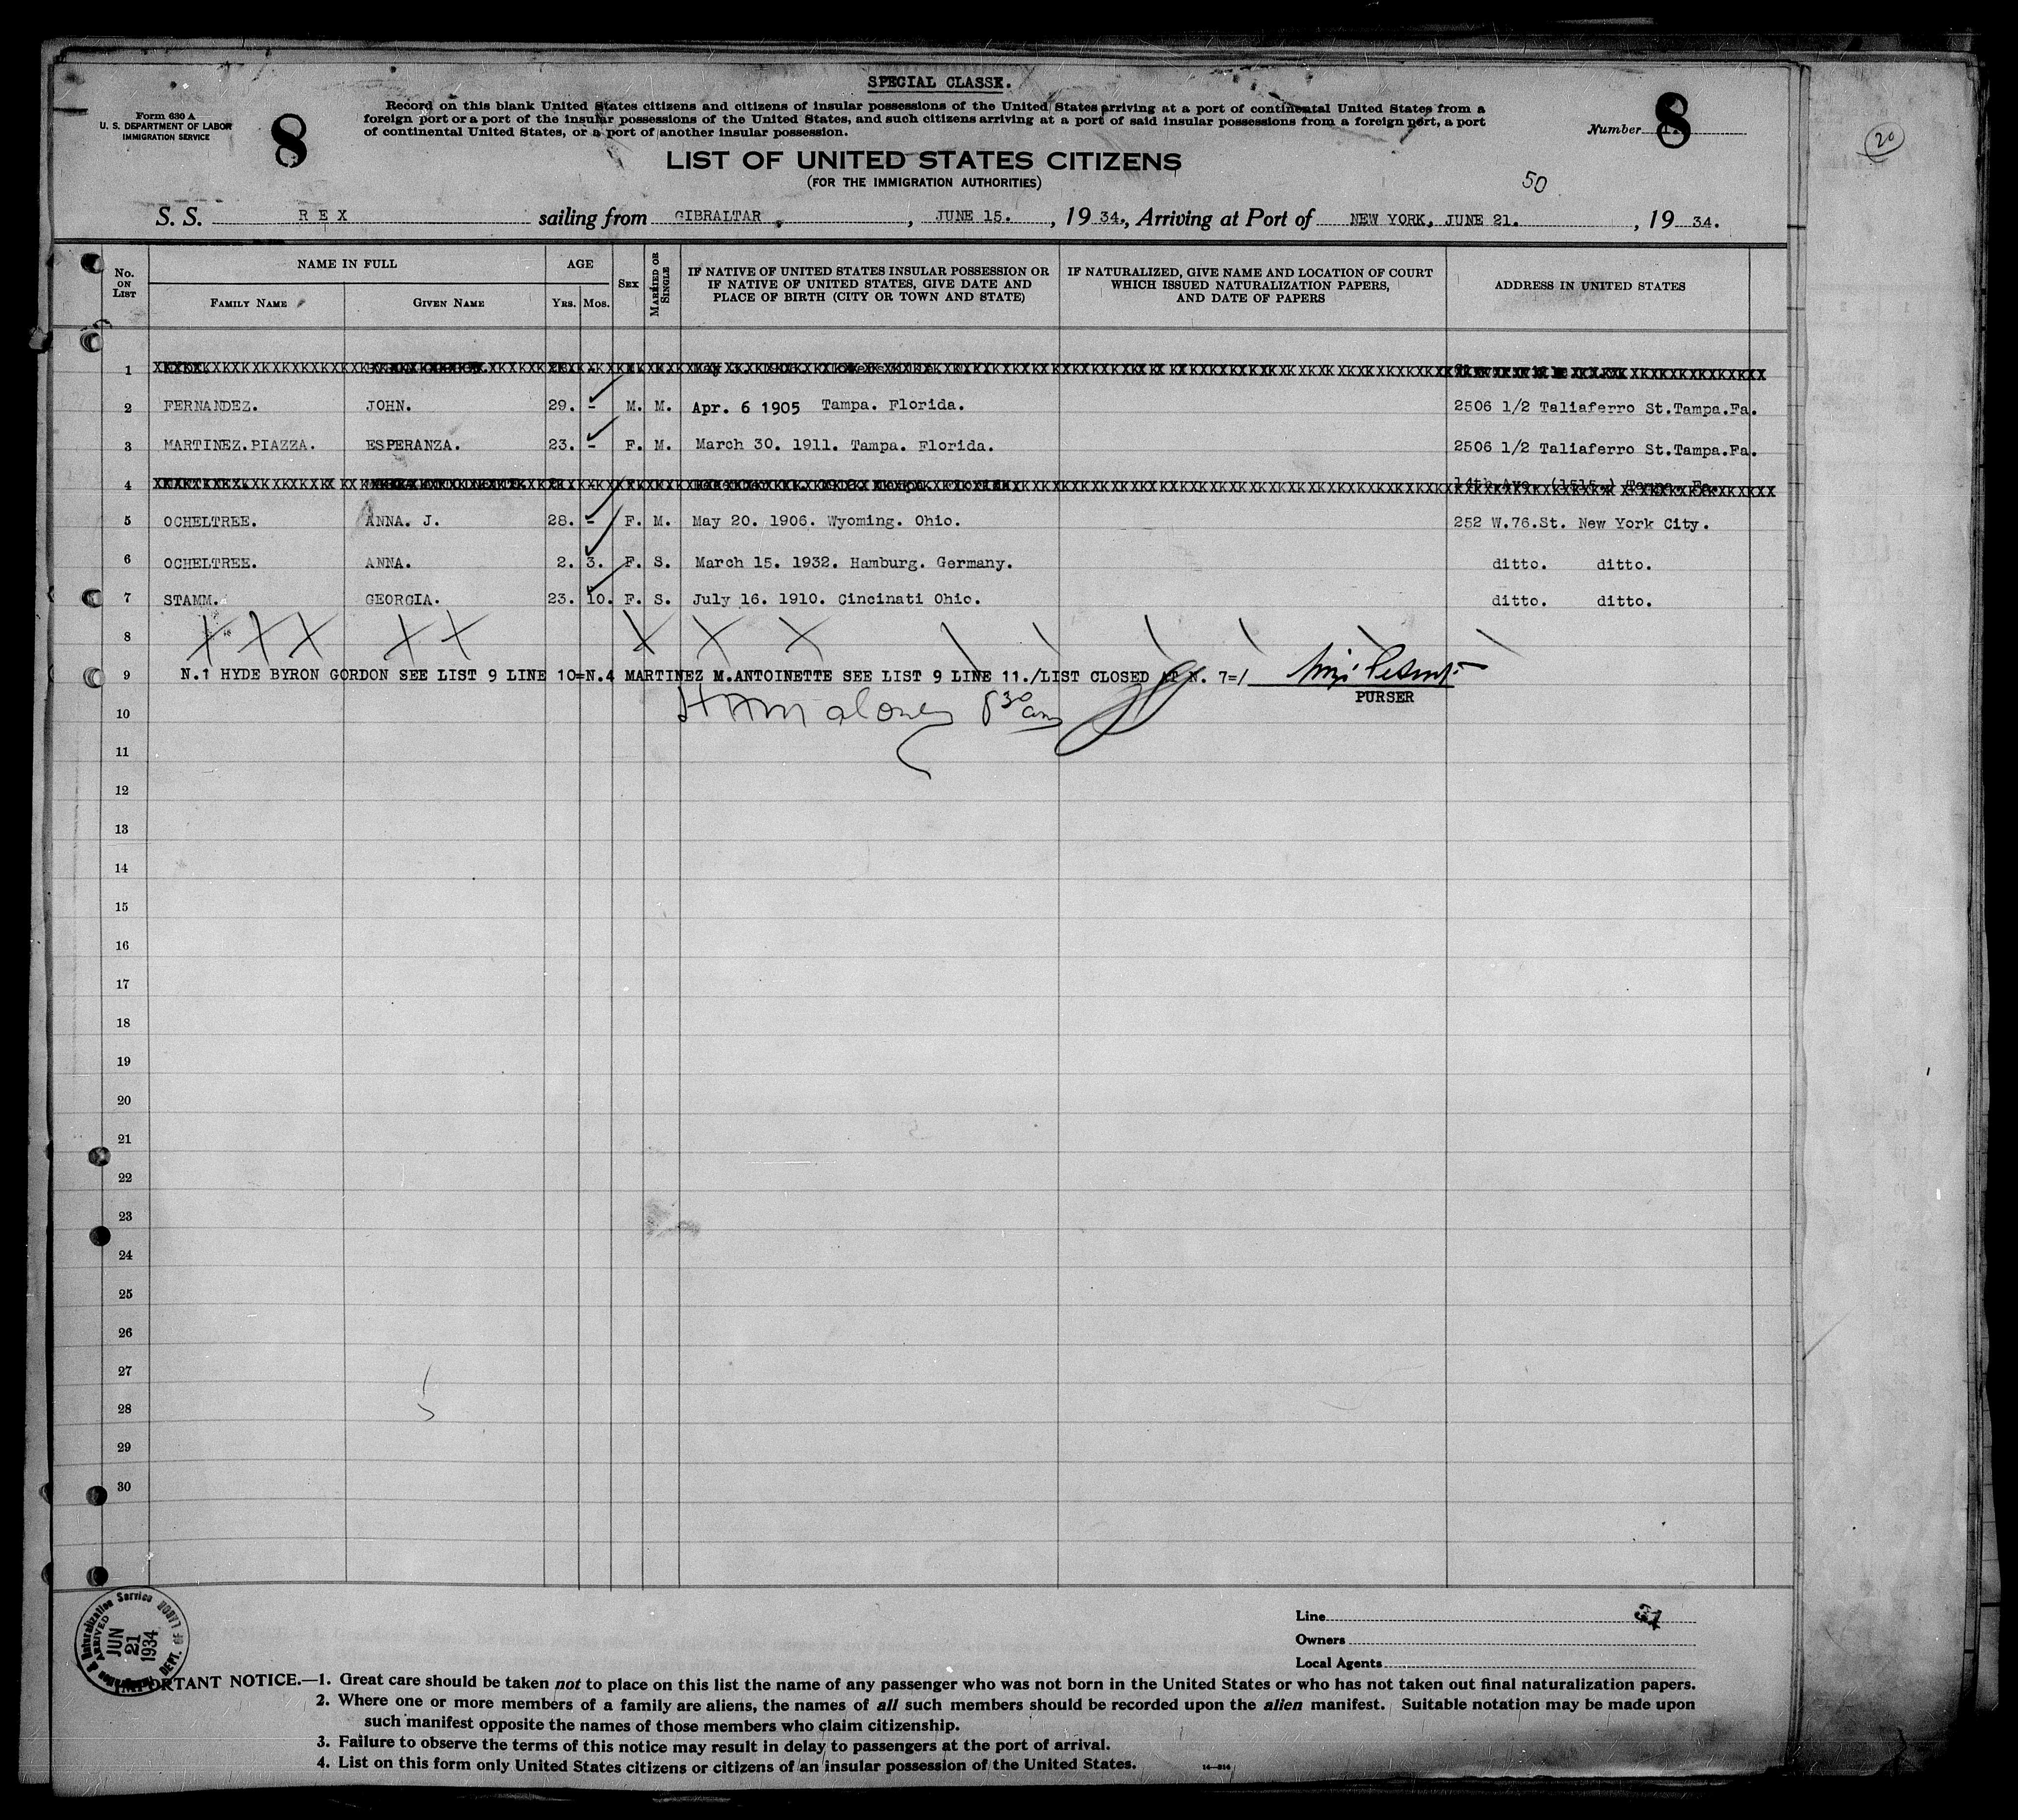 SPECIAL CLASSE.
Form 630 A
U. S. DEPARTMENT OF LABOR
IMMIGRATION SERVICE
8
Record on this blank United States citizens and citizens of insular possessions of the United States arriving at a port of continental United States from a
foreign port or a port of the insular possessions of the United States, and such citizens arriving at a port of said insular possessions from a foreign port, a port
of continental United States, or a port of another insular possession.
Number 8
20
LIST OF UNITED STATES CITIZENS
(FOR THE IMMIGRATION AUTHORITIES)
50
S. S. REX sailing from GIBRALTAR, JUNE 15., 1934., Arriving at Port of NEW YORK, JUNE 21., 1934.
No. ON LIST
NAME IN FULL
FAMILY NAME
GIVEN NAME
AGE
YRS.
MOS.
SEX
MARRIED OR SINGLE
IF NATIVE OF UNITED STATES INSULAR POSSESSION OR
IF NATIVE OF UNITED STATES, GIVE DATE AND
PLACE OF BIRTH (CITY OR TOWN AND STATE)
IF NATURALIZED, GIVE NAME AND LOCATION OF COURT
WHICH ISSUED NATURALIZATION PAPERS,
AND DATE OF PAPERS
ADDRESS IN UNITED STATES
1
2 FERNANDEZ. JOHN. 29. - M. M. Apr. 6 1905 Tampa. Florida. 2506 1/2 Taliaferro St.Tampa.Fa.
3 MARTINEZ.PIAZZA. ESPERANZA. 23. - F. M. March 30. 1911. Tampa. Florida. 2506 1/2 Taliaferro St.Tampa.Fa.
4 14th Ave. (1515.) Tampa. Fa.
5 OCHELTREE. ANNA. J. 28. - F. M. May 20. 1906. Wyoming. Ohio. 252 W.76.St. New York City.
6 OCHELTREE. ANNA. 2. 3. F. S. March 15. 1932. Hamburg. Germany. ditto. ditto.
7 STAMM. GEORGIA. 23. 10. F. S. July 16. 1910. Cincinati Ohio. ditto. ditto.
8
9 N.1 HYDE BYRON GORDON SEE LIST 9 LINE 10=N.4 MARTINEZ M.ANTOINETTE SEE LIST 9 LINE 11./LIST CLOSED AT N. 7=/
PURSER
10 H M Maloney 8 30 am
11
12
13
14
15
16
17
18
19
20
21
22
23
24
25
26
27
28
29
30
Immigration & Naturalization Service
ARRIVED
JUN
21
1934
DEPT. OF LABOR
Line
Owners
Local Agents
IMPORTANT NOTICE.—1. Great care should be taken not to place on this list the name of any passenger who was not born in the United States or who has not taken out final naturalization papers.
2. Where one or more members of a family are aliens, the names of all such members should be recorded upon the alien manifest. Suitable notation may be made upon
such manifest opposite the names of those members who claim citizenship.
3. Failure to observe the terms of this notice may result in delay to passengers at the port of arrival.
4. List on this form only United States citizens or citizens of an insular possession of the United States.
14—814